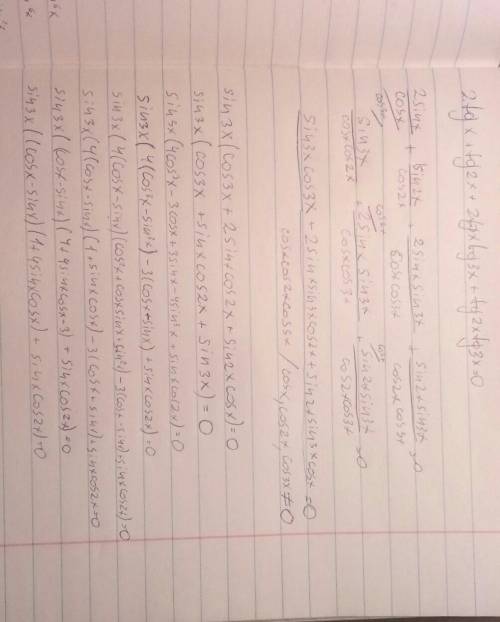 2tgx + tg2x + 2tgx tg3x + tg2x tg3x = 0
2sinx/cosx + sin2x/cos2x + 2sinx sin3x/cosx cos3x + sin2x sin3x/cos2x cos3x = 0
sin3x/cosx cos2x + 2sinx sin3x/cosx cos3x + sin2x sin3x/cos2x cos3x = 0
sin3x cos3x + 2sinx sin3x cos2x + sin2x sin3x cosx = 0
cosx cos2x cos3x / cosx, cos2x, cos3x ≠ 0
sin3x (cos3x + 2sinx cos2x + sin2x cosx) = 0
sin3x (cos3x + sinx cos2x + sin3x) = 0
sin3x (4cos³x - 3cosx + 3sinx - 4sin³x + sinx cos2x) = 0
sin3x (4(cos³x - sin³x) - 3(cosx - sinx) + sinx cos2x) = 0
sin3x (4(cosx - sinx)(cos²x + cosx sinx + sin²x) - 3(cosx - sinx) + sinx cos2x) = 0
sin3x (4(cosx - sinx)(1 + sinx cosx) - 3(cosx - sinx) + sinx cos2x = 0
sin3x ((cosx - sinx)(4 + 4sinx cosx - 3) + sinx cos2x) = 0
sin3x ((cosx - sinx)(1 + 4sinx cosx) + sinx cos2x) = 0